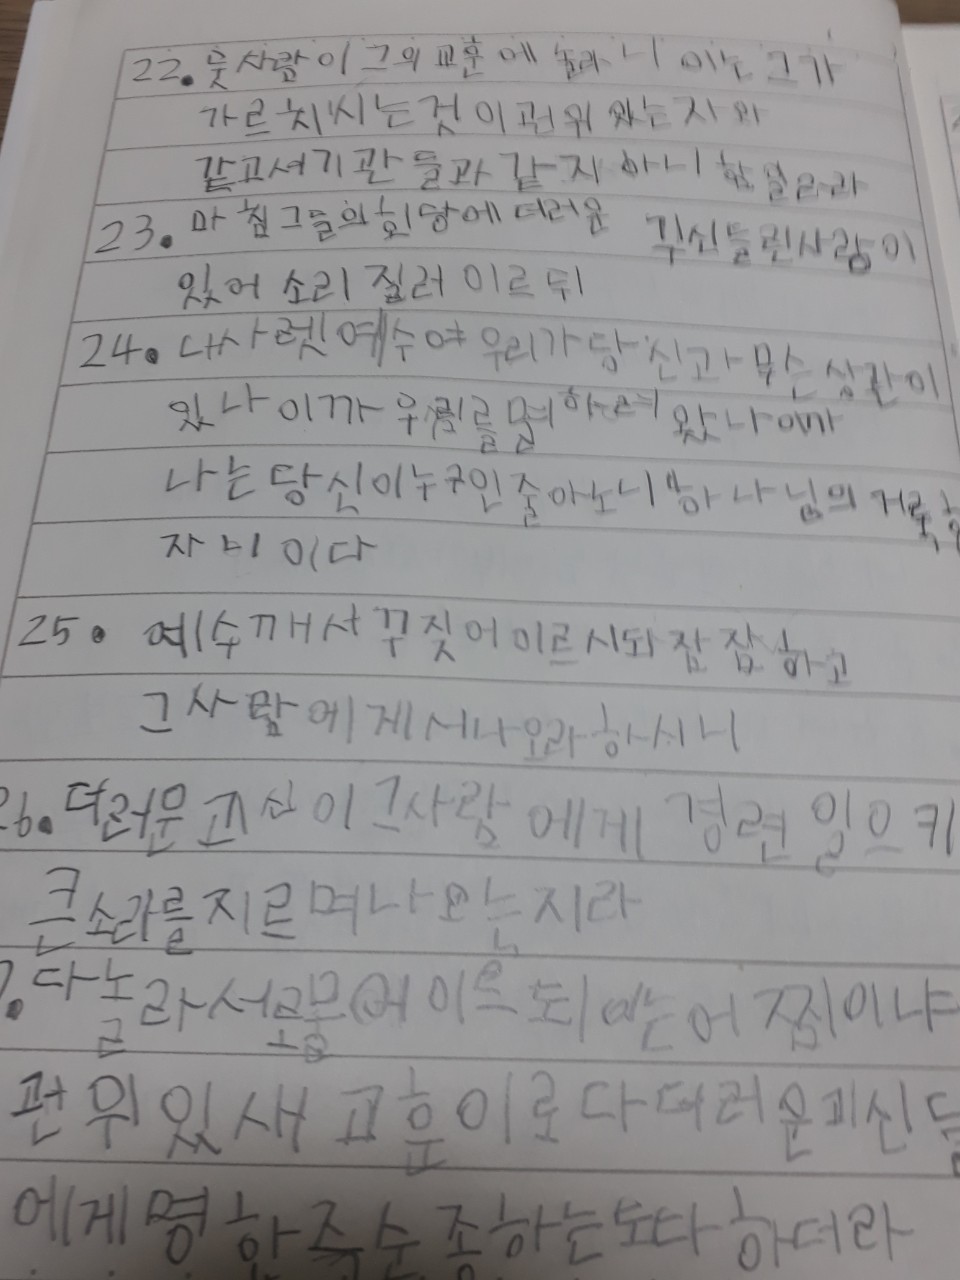 22. 뭇 사람이 그의 교훈에 놀라니 이는 그가
가르치시는 것이 권위 있는 자와
같고 서기관들과 같지 아니함일러라
23. 마침 그들의 회당에 더러운 귀신들린 사람이
있어 소리 질러 이르되
24. 나사렛 예수여 우리가 당신과 무슨 상관이
있나이까 우릴를 멸하려 왔나이까
나는 당신이 누구인줄 아노니 하나님의 거룩한
자니이다
25. 예수께서 꾸짖어 이르시되 잠잠하고
그 사람에게서 나오라 하시니
26. 더러운 귀신이 그 사람에게 경련 일으키
큰 소리를 지르며 나오는지라
7. 다 놀라 서로 물어 이르되 이는 어찜이냐
권위 있 새 교훈이로다 더러운 귀신들
에게 명한즉 순종하는도다 하더라